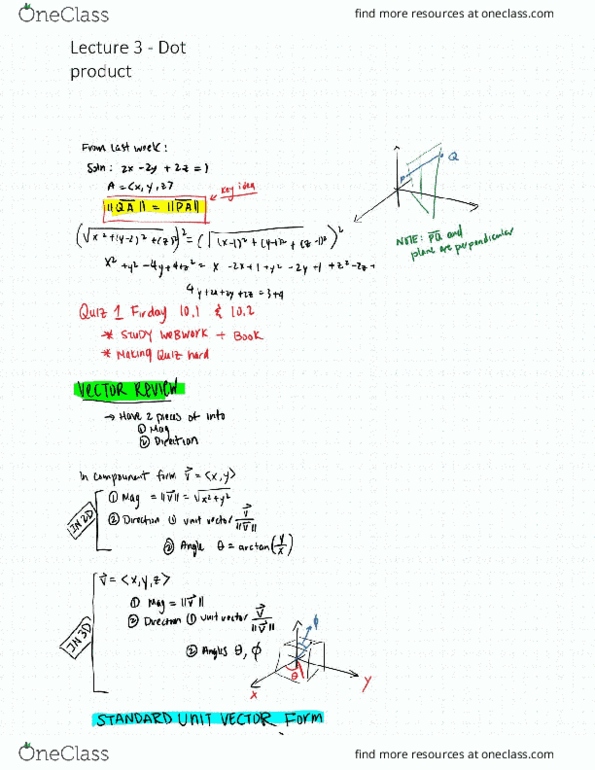 OneClass
find more resources at oneclass.com
Lecture 3 - Dot
product
From last week:
Soln: 2x - 2y + 2z = 1
A = <x, y, z>
key idea
||QA|| = ||PA||
P
Q
NOTE: PQ and
plane are perpendicular
(√x² + (y-2)² + (z)²)² = (√(x-1)² + (y-1)² + (z-1)²)²
x² + y² - 4y + 4 + z² = x - 2x + 1 + y² - 2y + 1 + z² - 2z +
Quiz 1 Firday 10.1 & 10.2
* STUDY WEBWORK + Book
* Making Quiz hard
VECTOR REVIEW
→ Have 2 pieces of info
① Mag
② Direction
In component form v⃗ = <x, y>
IN 2D
① Mag = ||v⃗|| = √x² + y²
② Direction ① unit vector v⃗/||v⃗||
② Angle θ = arctan(y/x)
v⃗ = <x, y, z>
IN 3D
① Mag = ||v⃗||
② Direction ① unit vector v⃗/||v⃗||
② Angles θ, ϕ
ϕ
θ
x
y
STANDARD UNIT VECTOR Form
OneClass
find more resources at oneclass.com